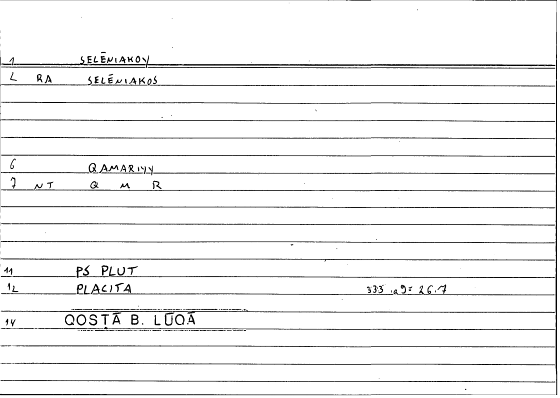 1 SELĒNIAKOV
2 RA SELĒNIAKOS
6 QAMARIYY
7 NT Q M R
11 PS PLUT
12 PLACITA 333 .a9= 26.7
14 QOSṬĀ B. LŪQĀ